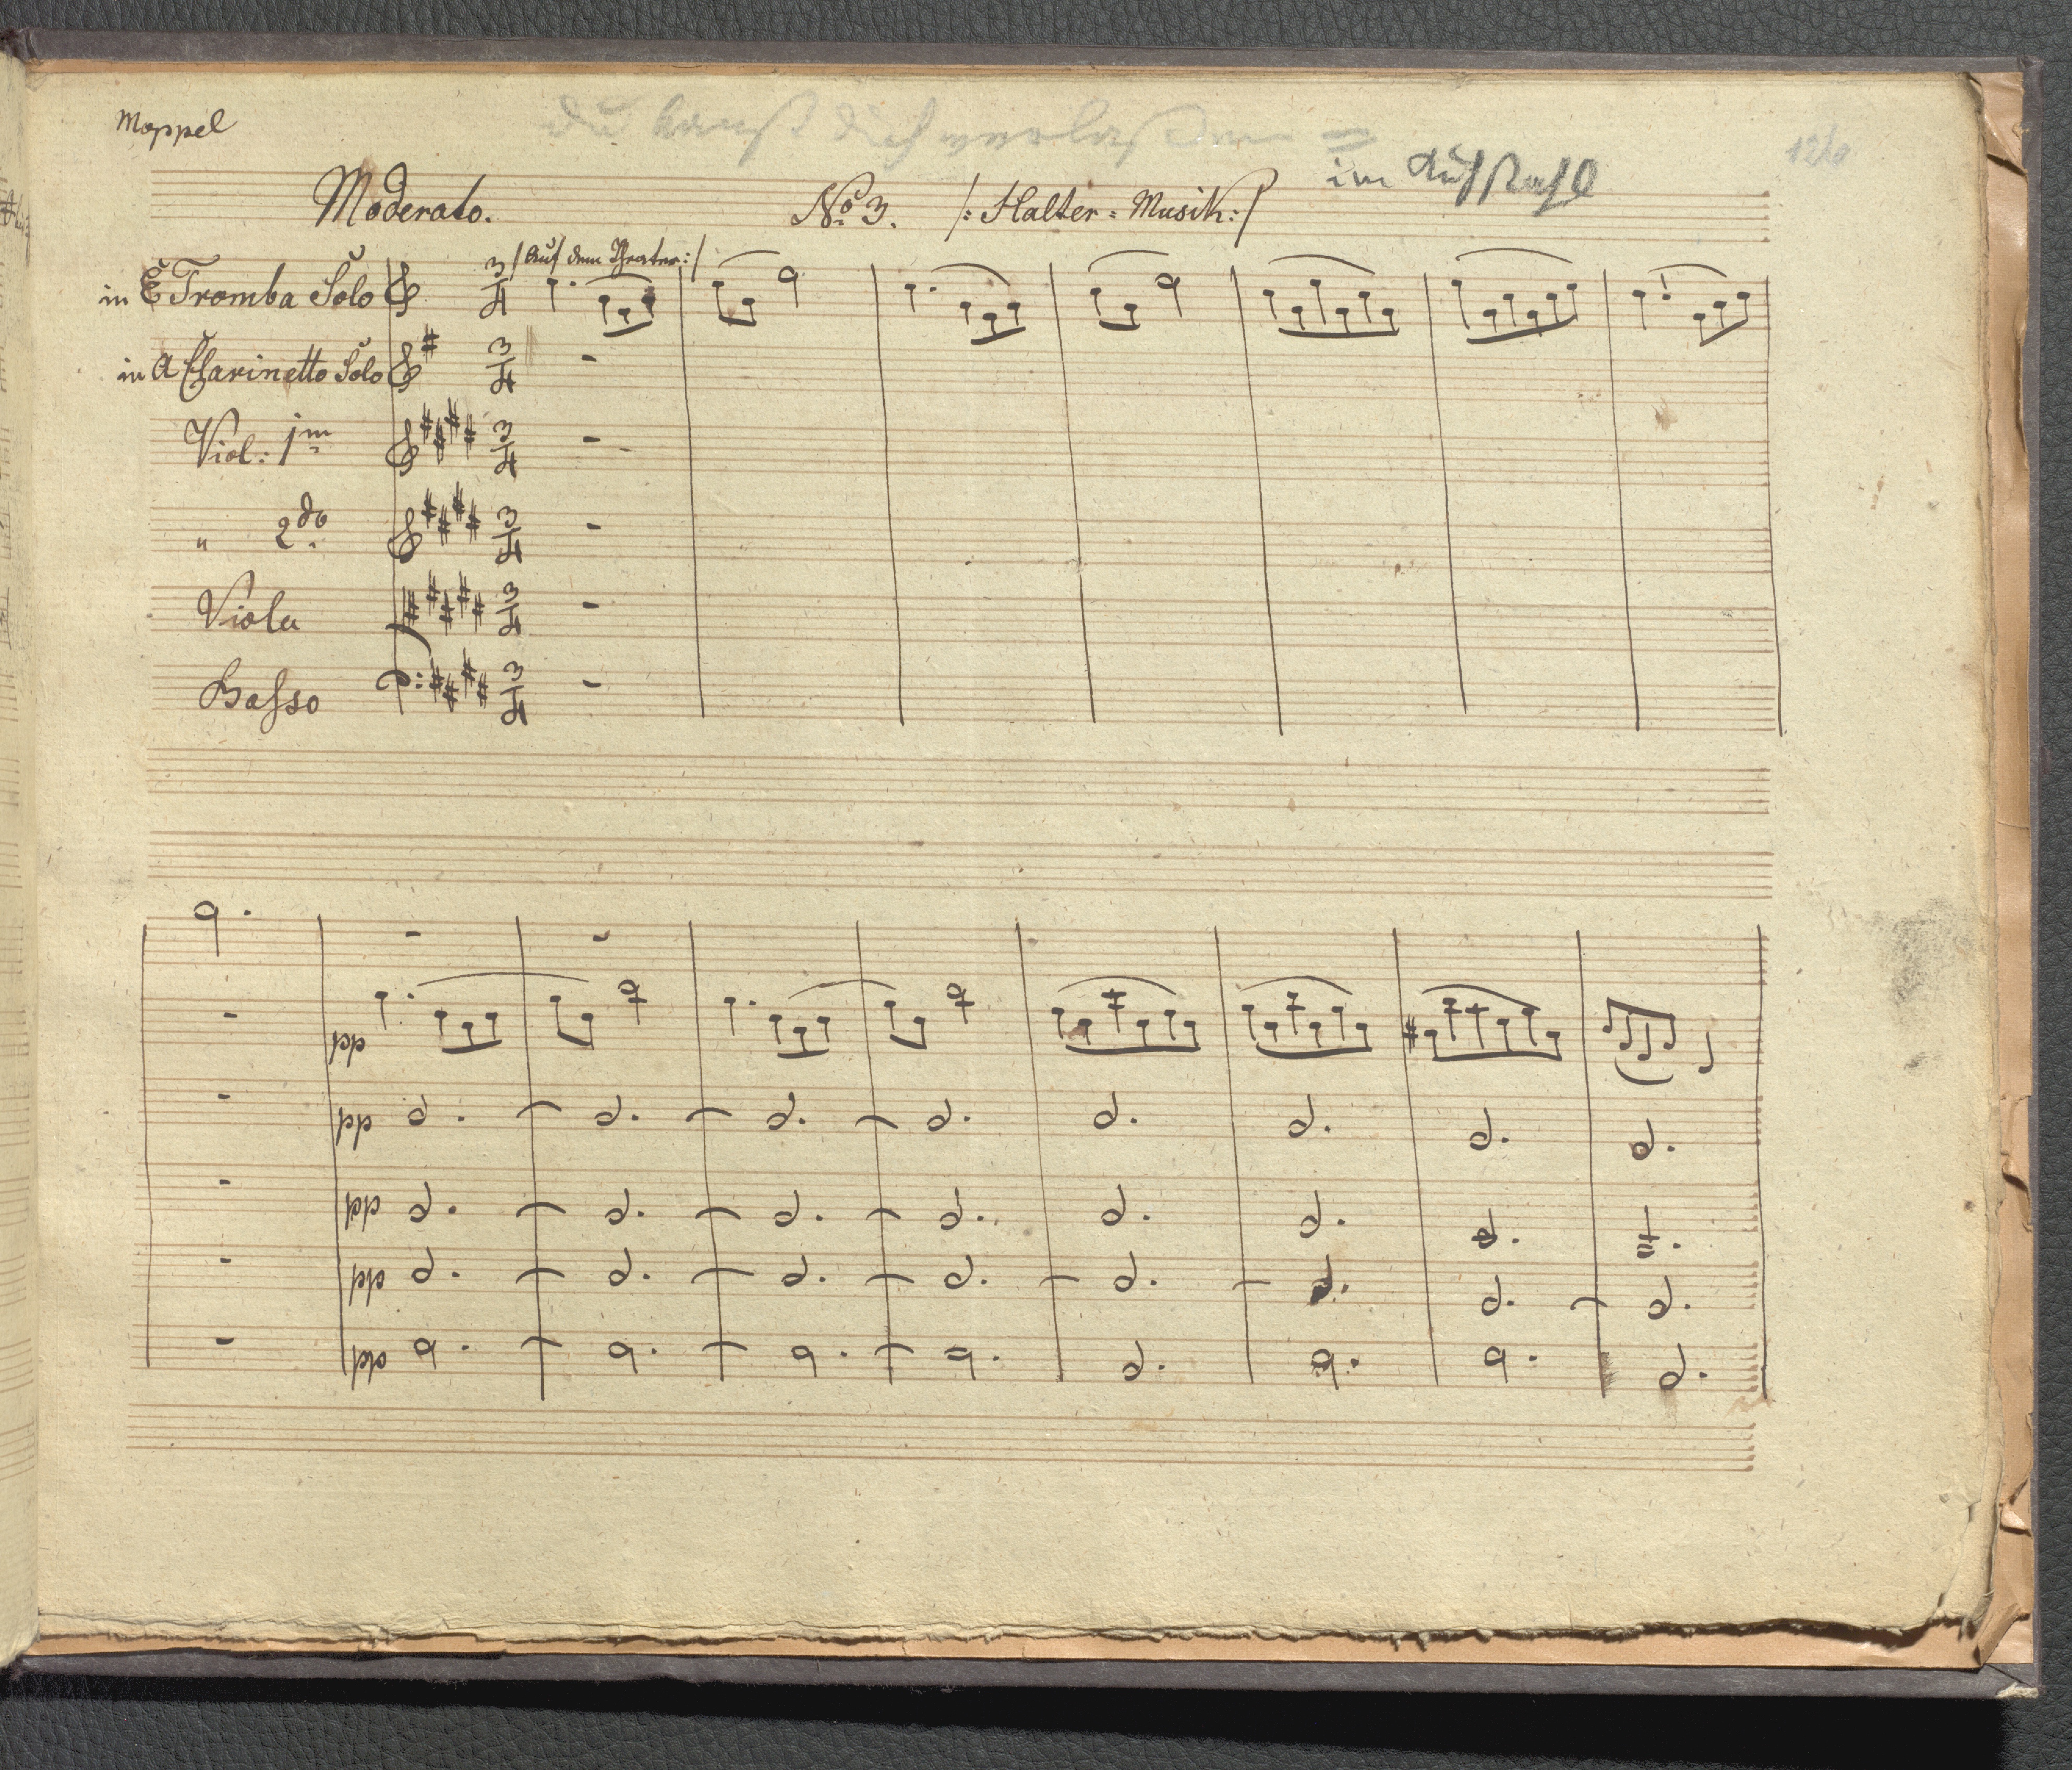 Moppel
du kanst dich verlassen =
im
126
Moderato. No. 3. /: Halter = Musik :/
/: Auf dem Theater :/
in E Tromba Solo 3/4
in A Clarinetto Solo 3/4
Viol: 1m 3/4
" 2do 3/4
Viola 3/4
Basso 3/4
pp
pp
pp
pp
pp